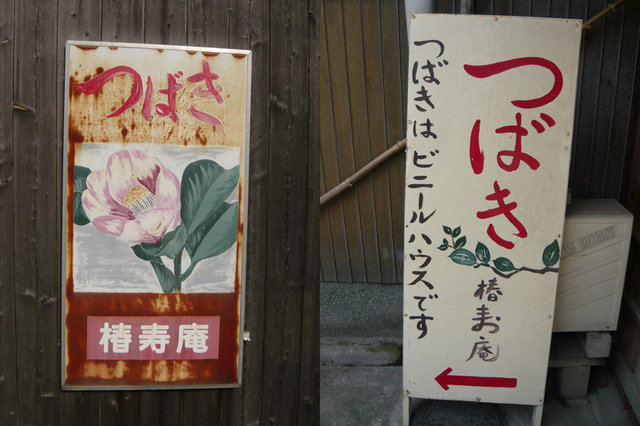 つばき
椿寿庵
つばき
椿寿庵
つばきはビニールハウスです
ROTARY